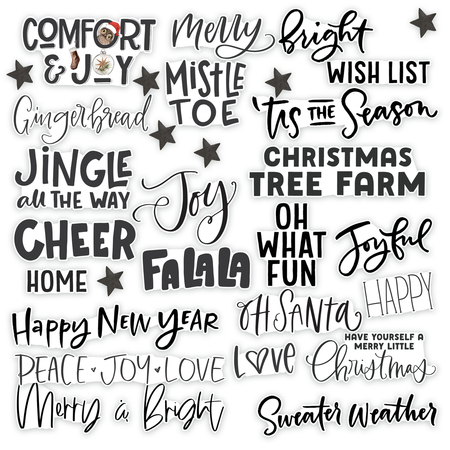 COMFORT
& JOY
Merry
Bright
WISH LIST
MISTLE
TOE
Gingerbread
'tis THE Season
JINGLE
all THE WAY
Joy
CHRISTMAS
TREE FARM
CHEER
OH
WHAT
FUN
Joyful
HOME
FALALA
HAPPY
OH SANTA
Happy New Year
HAVE YOURSELF A
MERRY LITTLE
Christmas
PEACE • JOY • LOVE
LOVE
Merry & Bright
Sweater Weather